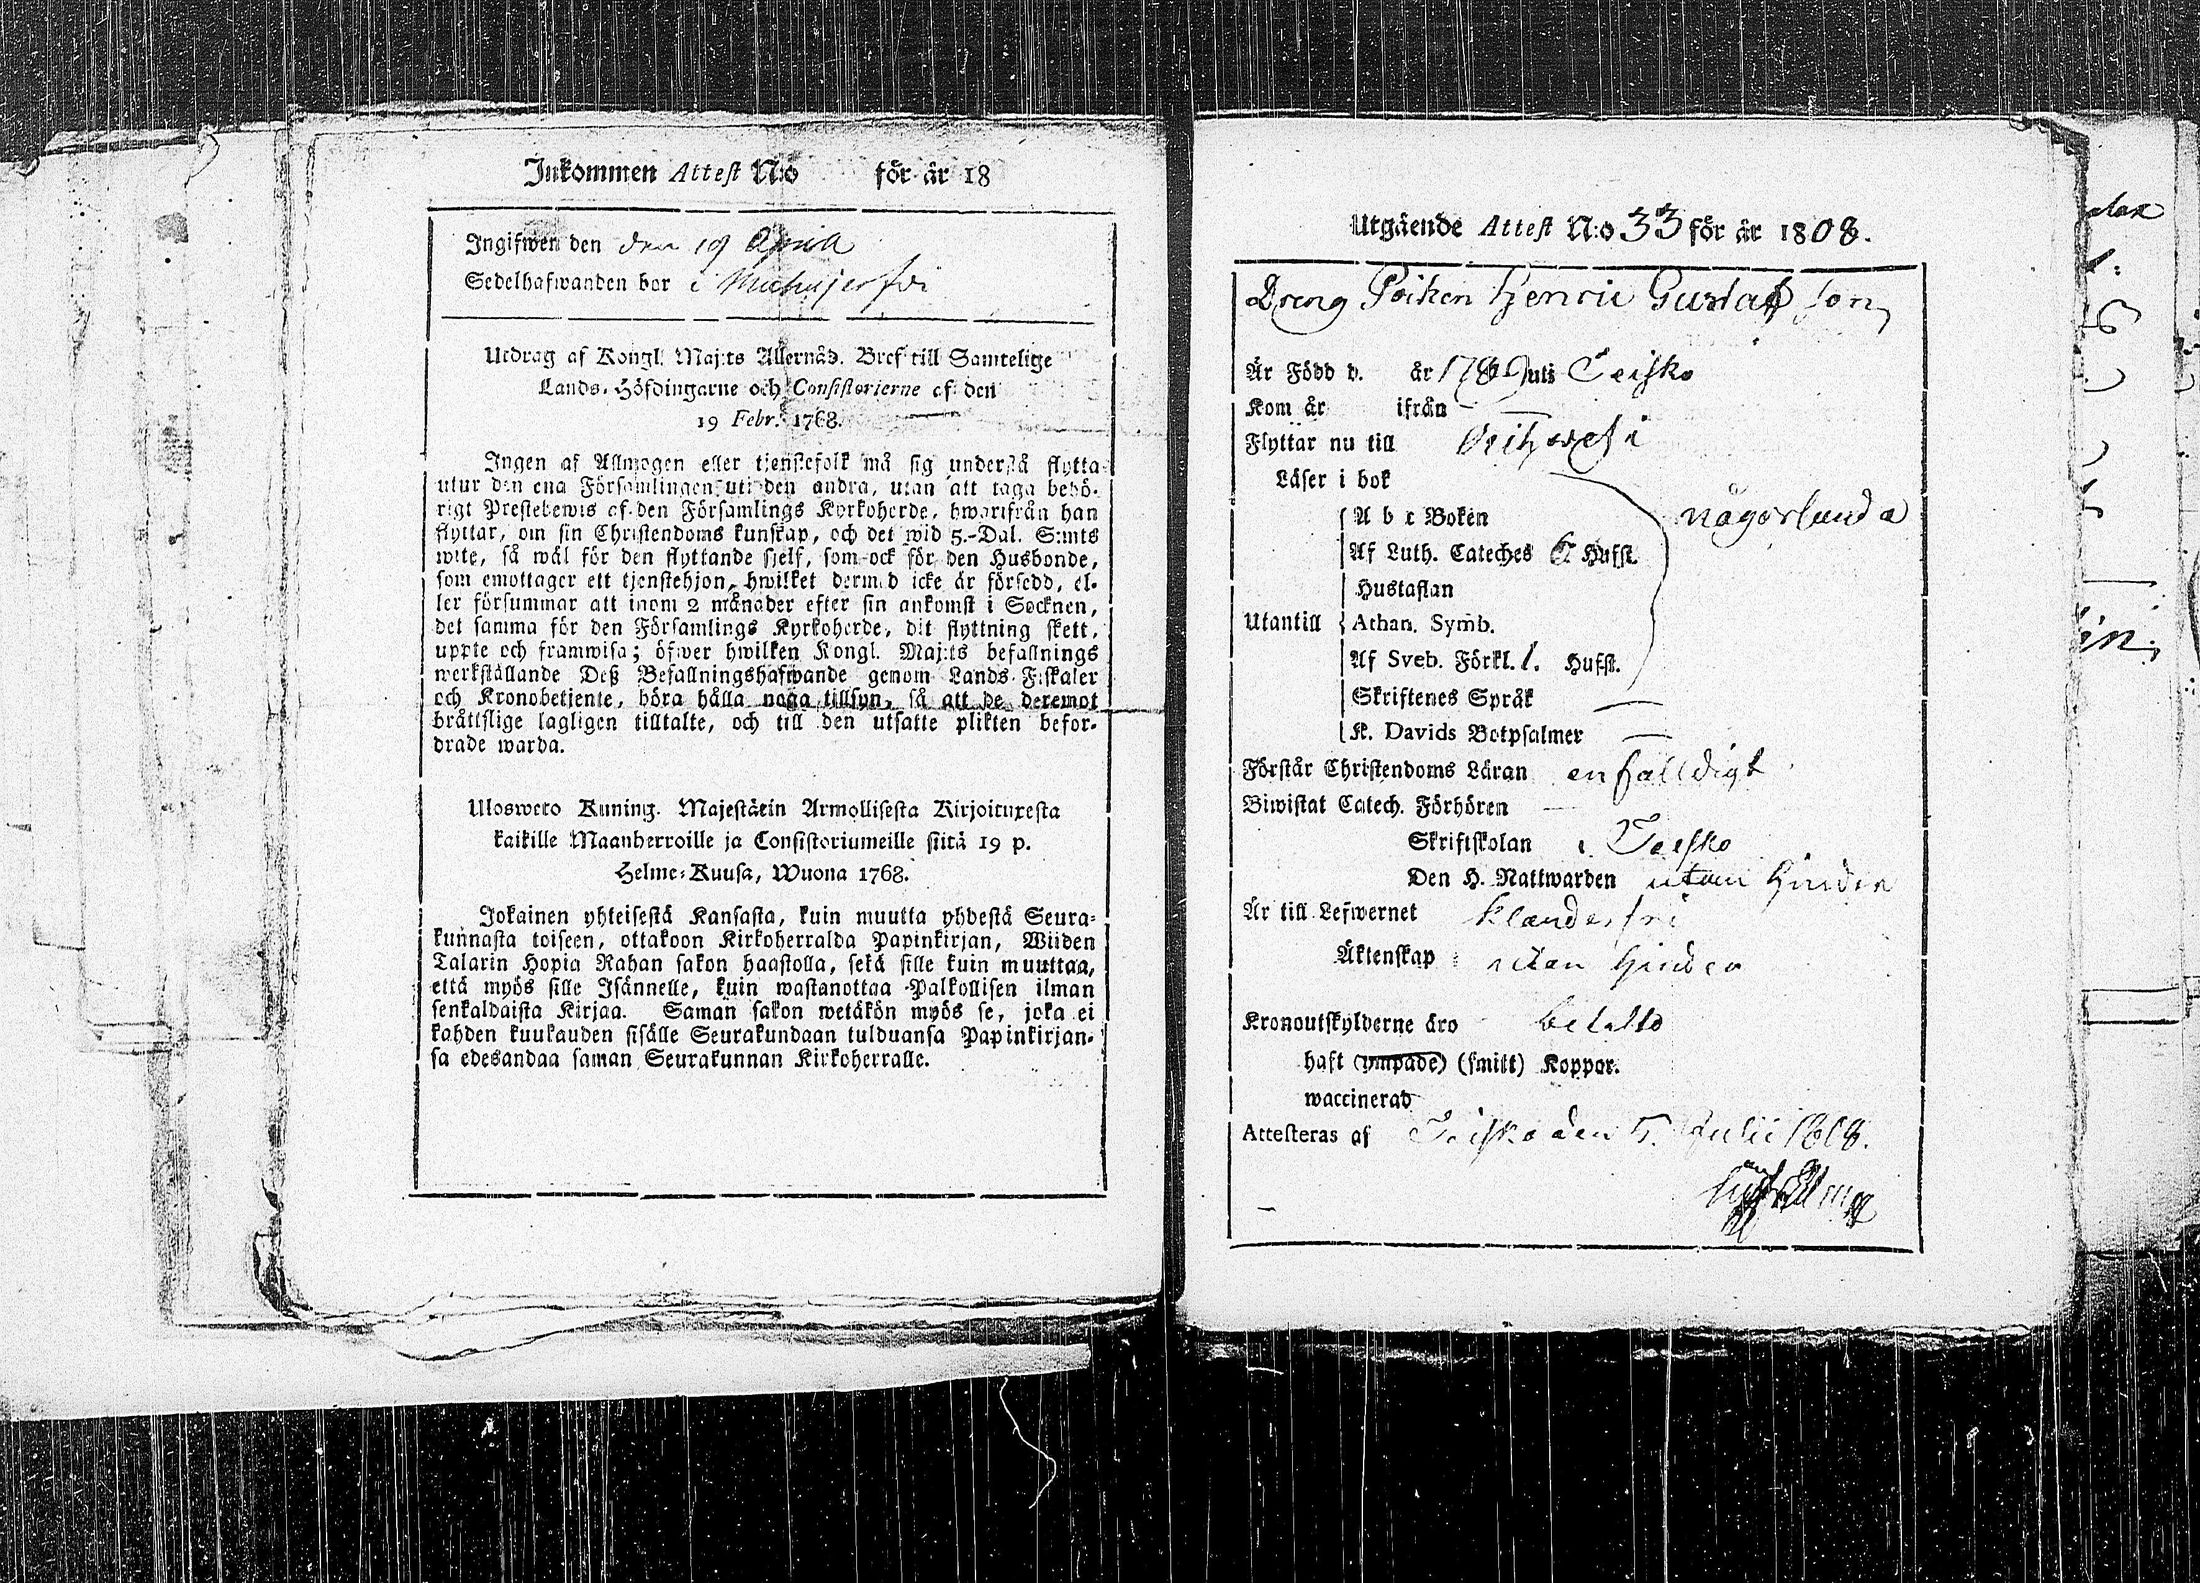 Inkommen Attest N:o för år 18
Ingifwen den den 19 April
Sedelhafwanden bor i
Utdrag af Kongl. Maj:ts Allernåd. Bref till Samtelige
Lands-Höfdingarne och Consistorierne af den
19 Febr. 1768.
Ingen af Allmogen eller tjenstefolk må sig understå flytta
utur den ena Församlingen uti den andra, utan att taga behö-
rigt Prestebewis af den Församlings Kyrkoherde, hwarifrån han
flyttar, om sin Christendoms kunskap, och det wid 5.-Dal. S:mts
wite, så wäl för den flyttande sjelf, som ock för den Husbonde,
som emottager ett tjenstehjon, hwilket dermed icke är försedd, el-
ler försummar att inom 2 månader efter sin ankomst i Socknen,
det samma för den Församlings Kyrkoherde, dit flyttning skett,
uppte och framwisa; öfwer hwilken Kongl. Maj:ts befallnings
werkställande Deß Befallningshafwande genom Lands-Fiskaler
och Kronobetjente, böra hålla noga tillsyn, så att de deremot
bråttslige lagligen tilltalte, och till den utsatte plikten befor-
drade warda.
Ulosweto Kuning. Majestätin Armollisesta Kirjoituxesta
kaikille Maanherroille ja Consistoriumeille siitä 19 p.
Helme-Kuusa, Wuona 1768.
Jokainen yhteisestä Kansasta, kuin muutta yhdestä Seura-
kunnasta toiseen, ottakoon Kirkoherralda Papinkirjan, Wiiden
Talarin Hopia Rahan sakon haastolla, sekä sille kuin muuttaa,
että myös sille Isännelle, kuin wastanottaa Palkollisen ilman
senkaldaista Kirjaa. Saman sakon wetäkön myös se, joka ei
kahden kuukauden sisälle Seurakundaan tulduansa Papinkirjan-
sa edesandaa saman Seurakunnan Kirkoherralle.
Utgående Attest N:o 33 för år 1808.
Dreng Poiken Henric Gustafsson
Är Född d. år Juli Teisko
Kom år ifrån —
Flyttar nu till Orihwesi
Läser i bok
A b c Boken någorlunda
Af Luth. Cateches Hufst.
Hustaflan
Utantill Athan. Symb.
Af Sveb. Förkl. 1. Hufst.
Skriftenes Språk —
K. Davids Botpsalmer —
Förstår Christendoms Läran enfalldigt
Biwistat Catech. Förhören —
Skriftskolan i Teisko
Den H. Nattwarden utan hinder
Är till Lefwernet klanderfri
Äktenskap utan hinder
Kronoutskylderne äro betalte
haft (ympade) (smitt) Koppor.
waccinerad
Attesteras af Teisko den 5. Julii 1808.